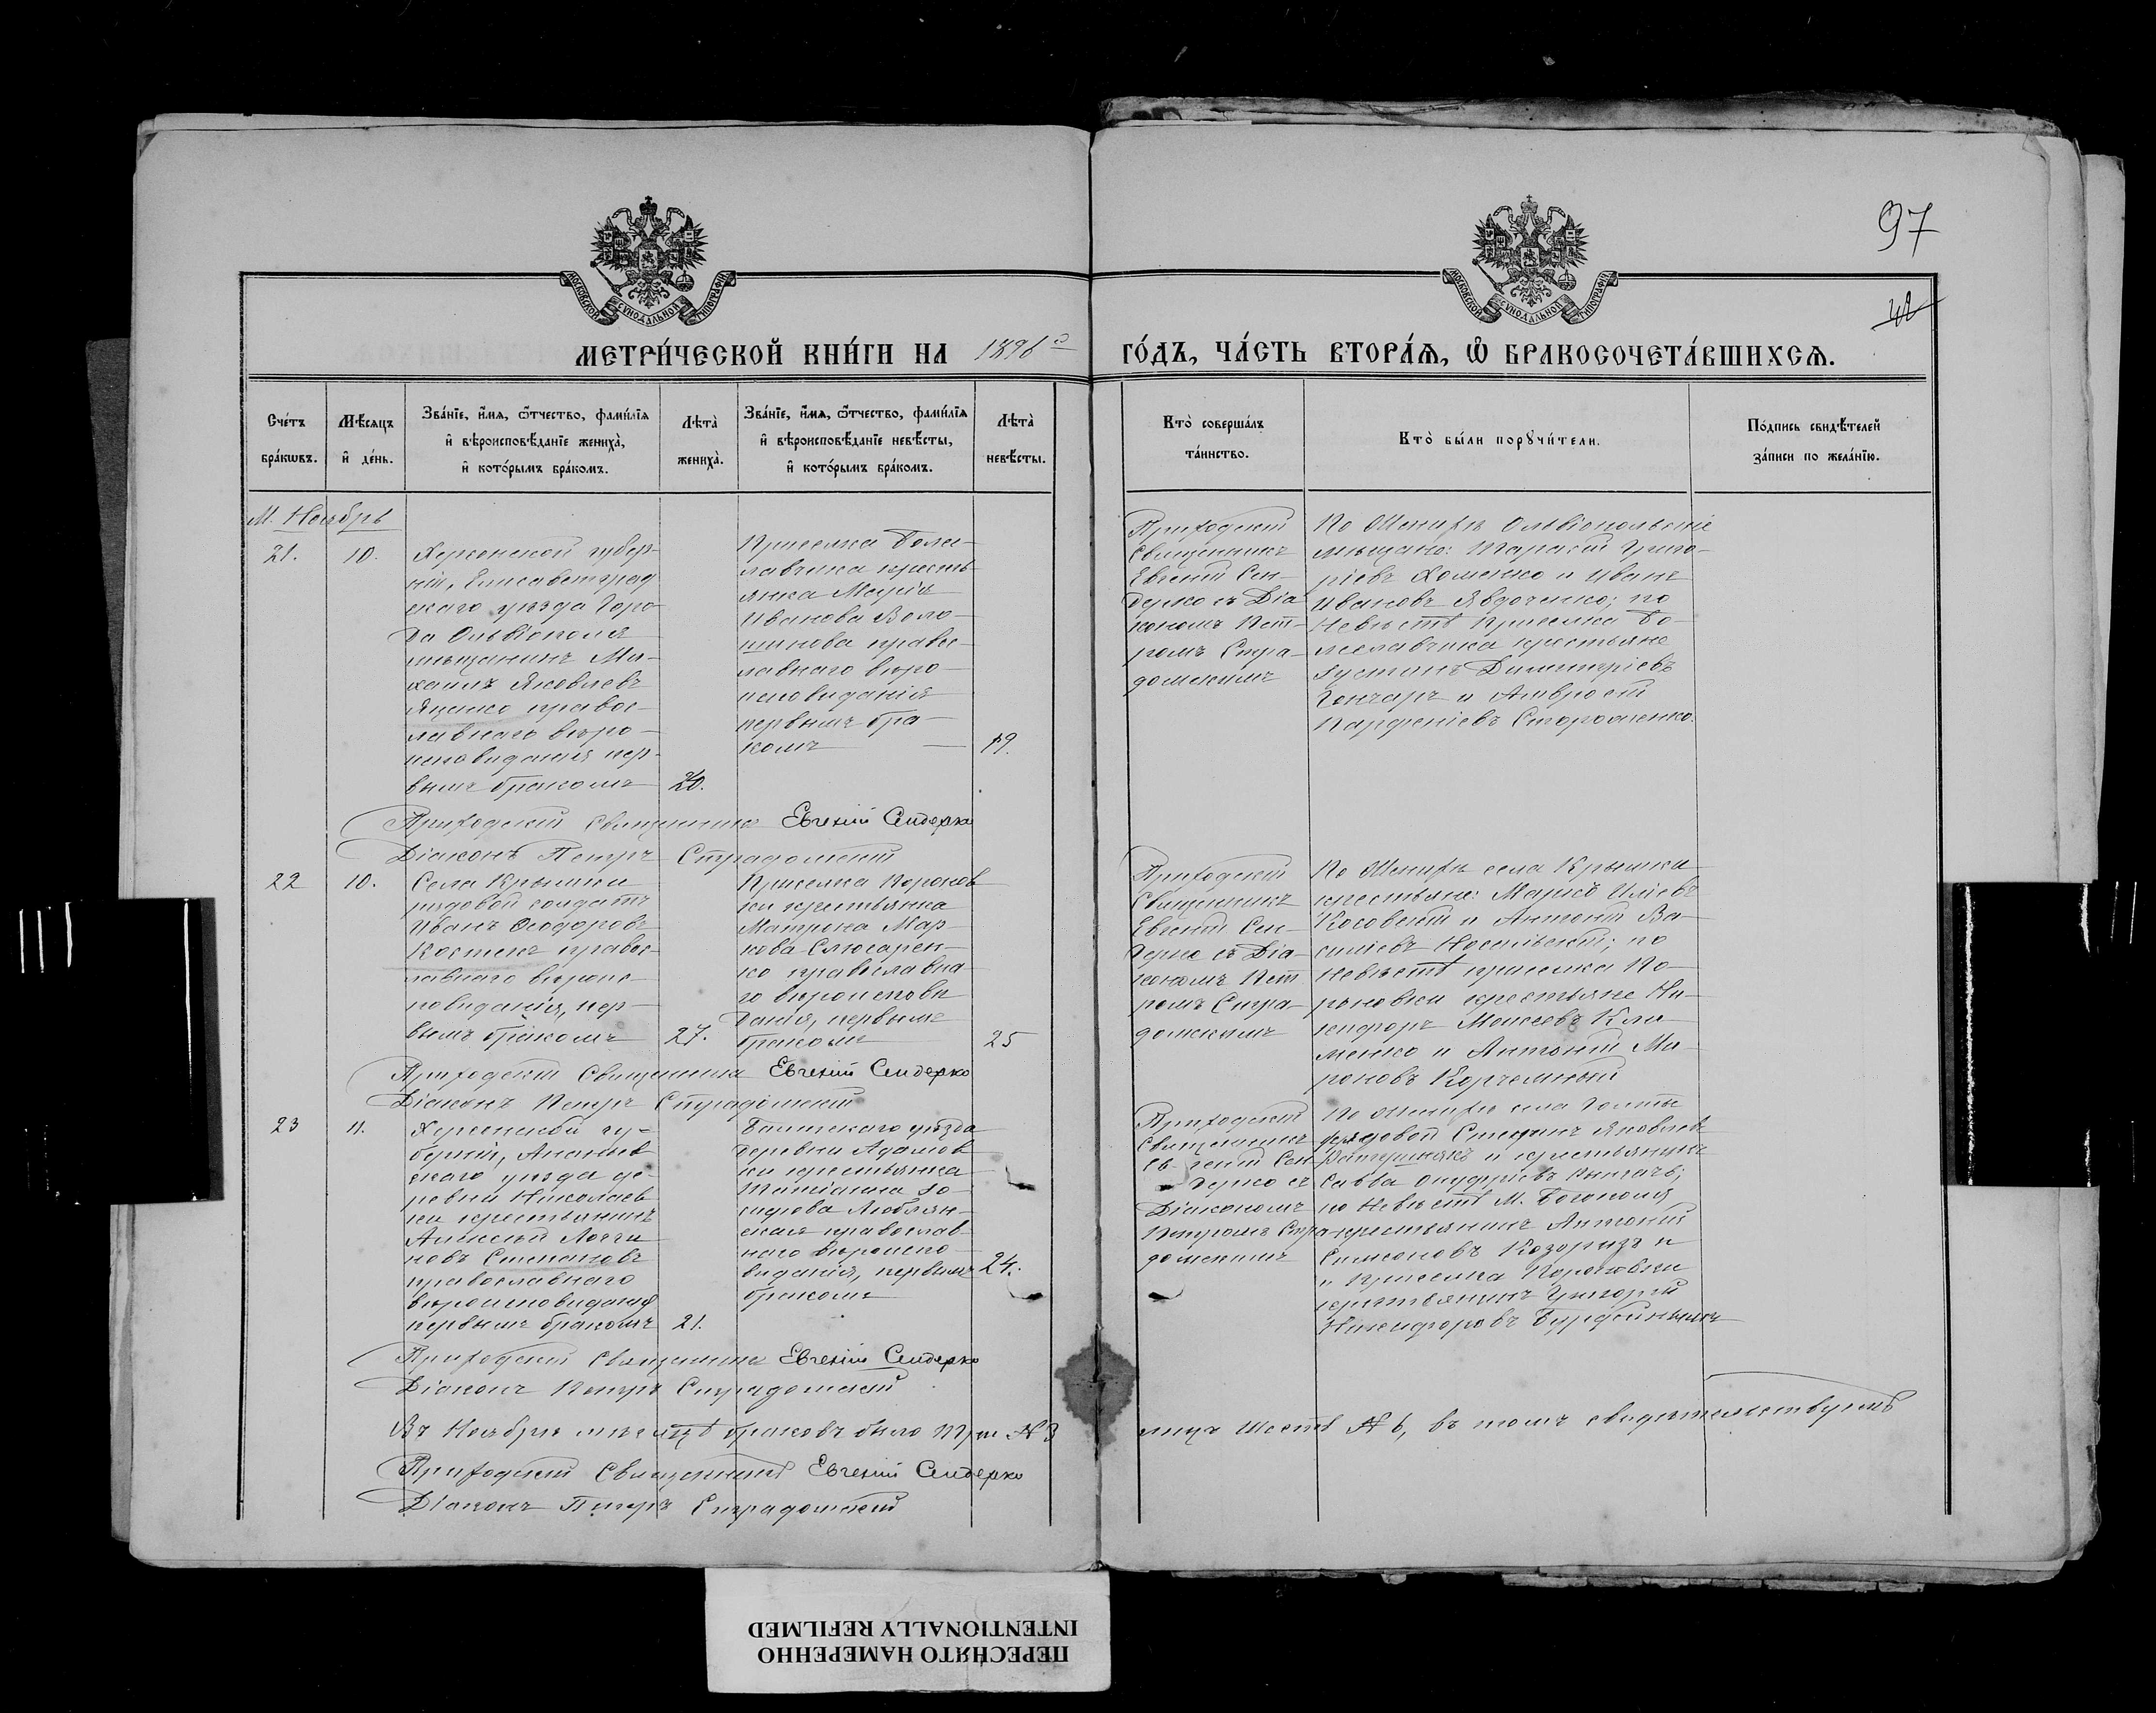 97
42
МОСКОВСКОЙ СѴНОДАЛЬНОЙ ТИПОГРАФІИ
МОСКОВСКОЙ СѴНОДАЛЬНОЙ ТИПОГРАФІИ
МЕТРИ́ЧЕСКОЙ КНИ́ГИ НА 1896 го
ГО́ДЪ, ЧА́СТЬ ВТОРА́Я, Ѽ БРАКОСОЧЕТА́ВШИХСЯ.
Счétъ бра́кѡвъ.
Мѣ́сяцъ и҆ де́нь.
Зва́нїе, и҆́мя, ѻ҆́тчество, фами́лїя
и҆ вѣроисповѣ́данїе жениха̀,
и҆ кото́рымъ бра́комъ.
Лѣта̀ жениха̀.
Зва́нїе, и҆́мя, ѻ҆́тчество, фами́лїя
и҆ вѣроисповѣ́данїе невѣ́сты,
и҆ кото́рымъ бра́комъ.
Лѣта̀ невѣ́сты.
Кто̀ соверша́лъ та́инство.
Кто̀ бы́ли порꙋчи́тели.
По́дпись свидѣ́телей за́писи по жела́нїю.
М. Ноябрь
21.
10.
Херсонской губер-
ніи, Елисаветград
скаго уѣзда Горо-
да Ольвіополя
мѣщанинъ Ми-
хаилъ Яковлевъ
Яценко правос-
лавнаго вѣро-
исповиданія пер-
вымъ бракомъ
20.
Приселка Боле-
лавчика кресть
янка Марія
Иванова Воло-
шинова правос-
лавнаго вѣро-
исповиданія
первымъ бра-
комъ —
19.
Приходскій
Священникъ
Евгеній Сен-
дерко съ Діа
кономъ Пет-
ромъ Стра-
домскимъ
По Женихѣ Ольвіопольскіе
мѣщане: Тарасій Григо-
ріевъ Хоменко и Иванъ
Ивановъ Явдоченко; по
Невѣстѣ Приселка Бо-
леславчика крестьяне
Іустинъ Димитріевъ
Гончаръ и Амвросій
Парфеніевъ Стороженко.
Приходскій Священникъ Евгеній Сендерко
Діаконъ Петръ Страдомскій
22
10.
Села Крымки
рядовой солдатъ
Иванъ Ѳеодоровъ
Костюкъ правос-
лавнаго вѣроис-
повиданія, пер-
вымъ бракомъ
27.
Приселка Коронов
ки крестьянка
Матрона Мар-
кова Слюсарен-
ко православна-
го вѣроисповѣ
данія, первымъ
бракомъ
25
Приходскій
Священникъ
Евгеній Сен-
дерко съ Діа-
кономъ Пет
ромъ Стра-
домскимъ
По Женихѣ села Крымки
крестьяне: Маркъ Иліевъ
Косовскій и Антоній Ва-
силіевъ Носальскій; по
Невѣстѣ приселка Ко-
роновки крестьяне Ни-
кифоръ Моисеевъ Кли-
менко и Антоній Ми-
роновъ Корчемный
Приходскій Священникъ Евгеній Сендерко
Діаконъ Петръ Страдомскій
23
11.
Херсонской гу-
берніи, Ананьев
скаго уѣзда де-
ревни Николаев
ки крестьянинъ
Алексѣй Логги
новъ Степановъ
православнаго
вѣроисповиданія
первымъ бракомъ
21.
Балтскаго уѣзда
деревни Адамов
ки крестьянка
Татіанна Іо-
сифова Люблян-
ская православ-
наго вѣроиспо-
виданія, первымъ
бракомъ
24.
Приходскій
Священникъ
Евгеній Сен-
дерко съ
Діакономъ
Петромъ Стра-
домскимъ
По Женихѣ села Голты
рядовой Стефанъ Яковлевъ
и крестьянинъ
Савва Онуфріевъ
по Невѣстѣ М. Богополя
крестьянинъ Антоній
Симеоновъ Козоризъ и
и Приселка Короновки
крестьянинъ Григорій
Никифоровъ
Приходскій Священникъ Евгеній Сендерко
Діаконъ Петръ Страдомскій
Въ Ноябрѣ мѣсяцѣ браковъ было три № 3
лицъ Шесть № 6, въ томъ свидѣтельствуемъ
Приходскій Священникъ Евгеній Сендерко
Діаконъ Петръ Страдомскій
ПЕРЕСНЯТО НАМЕРЕННО
INTENTIONALLY REFILMED